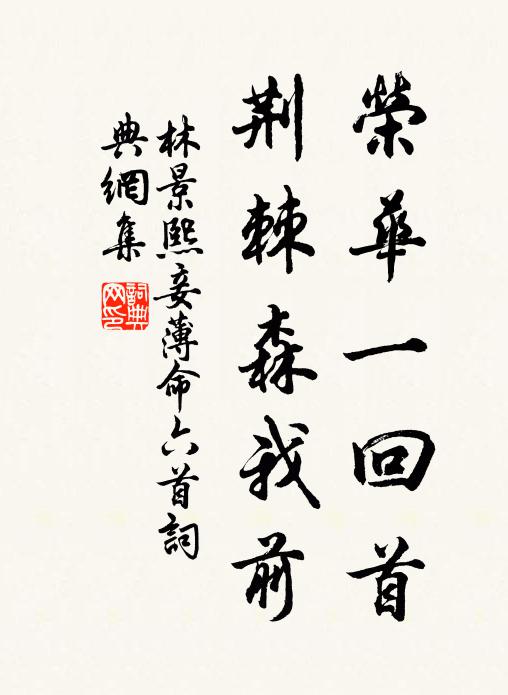 榮華一回首
荆棘森我前
林景熙妾薄命六首詞
典網集
詞典網印